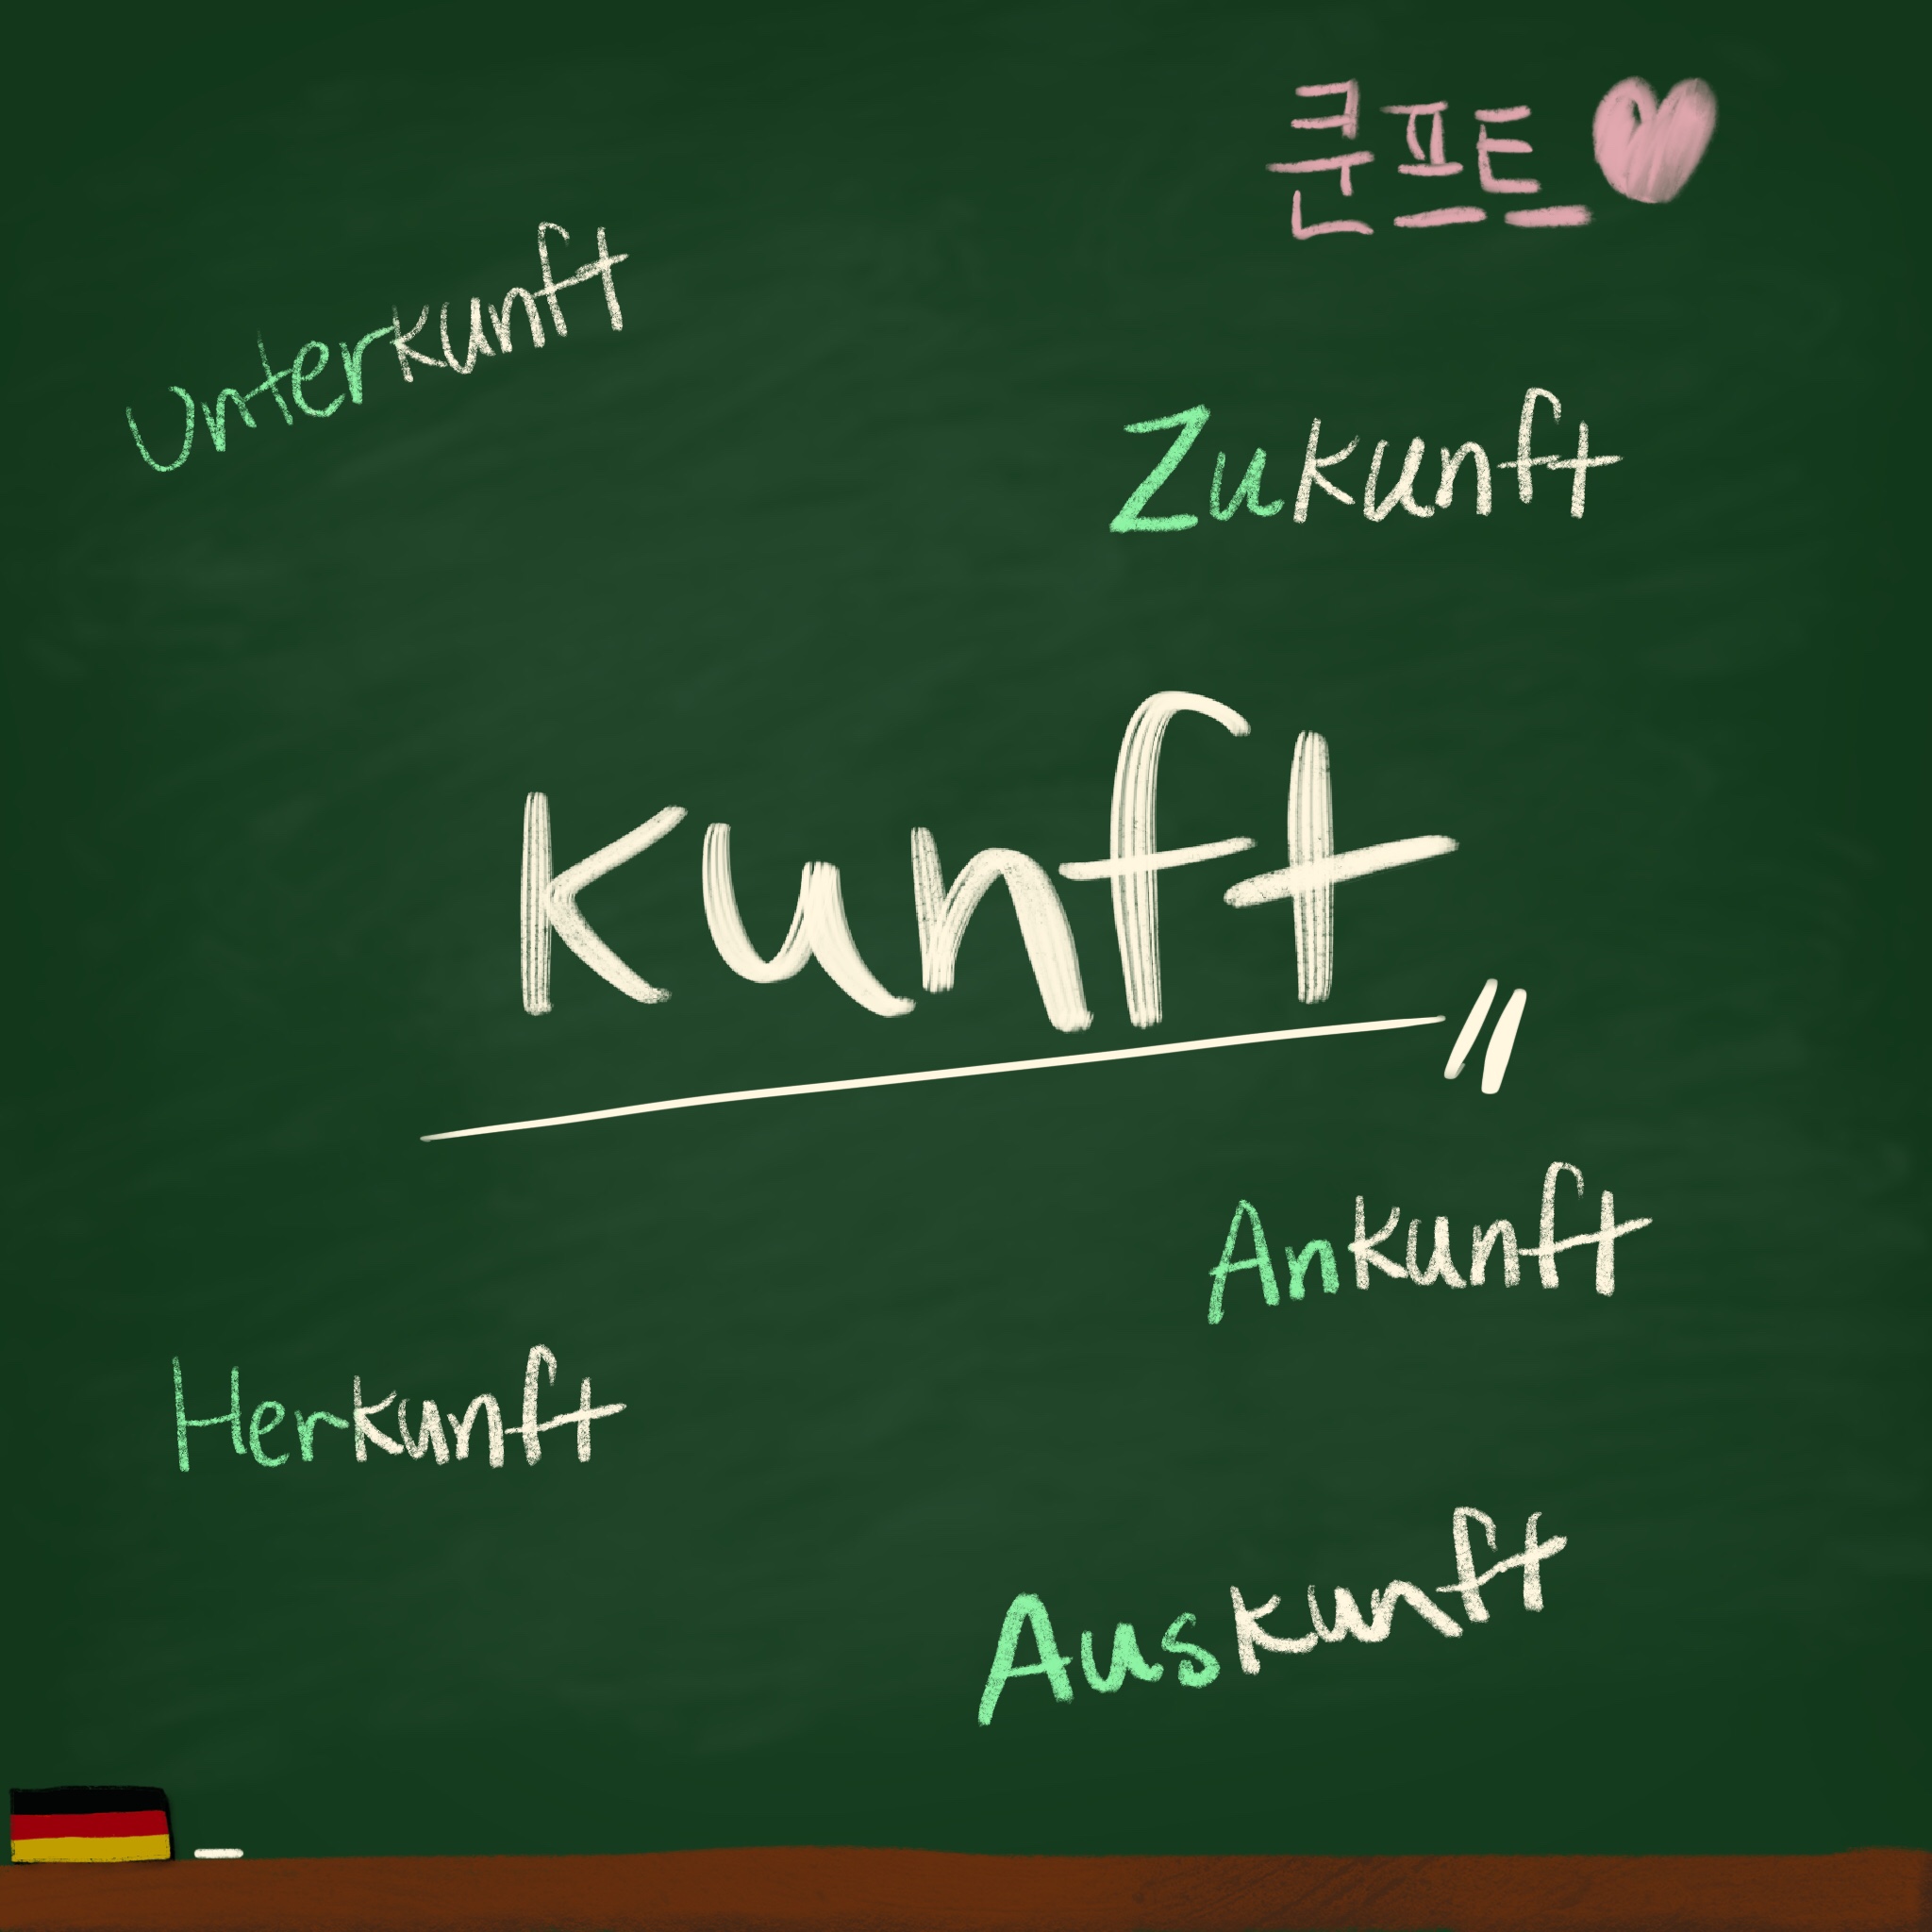 쿤프트
Unterkunft
Zukunft
kunft
Ankunft
Herkunft
Auskunft